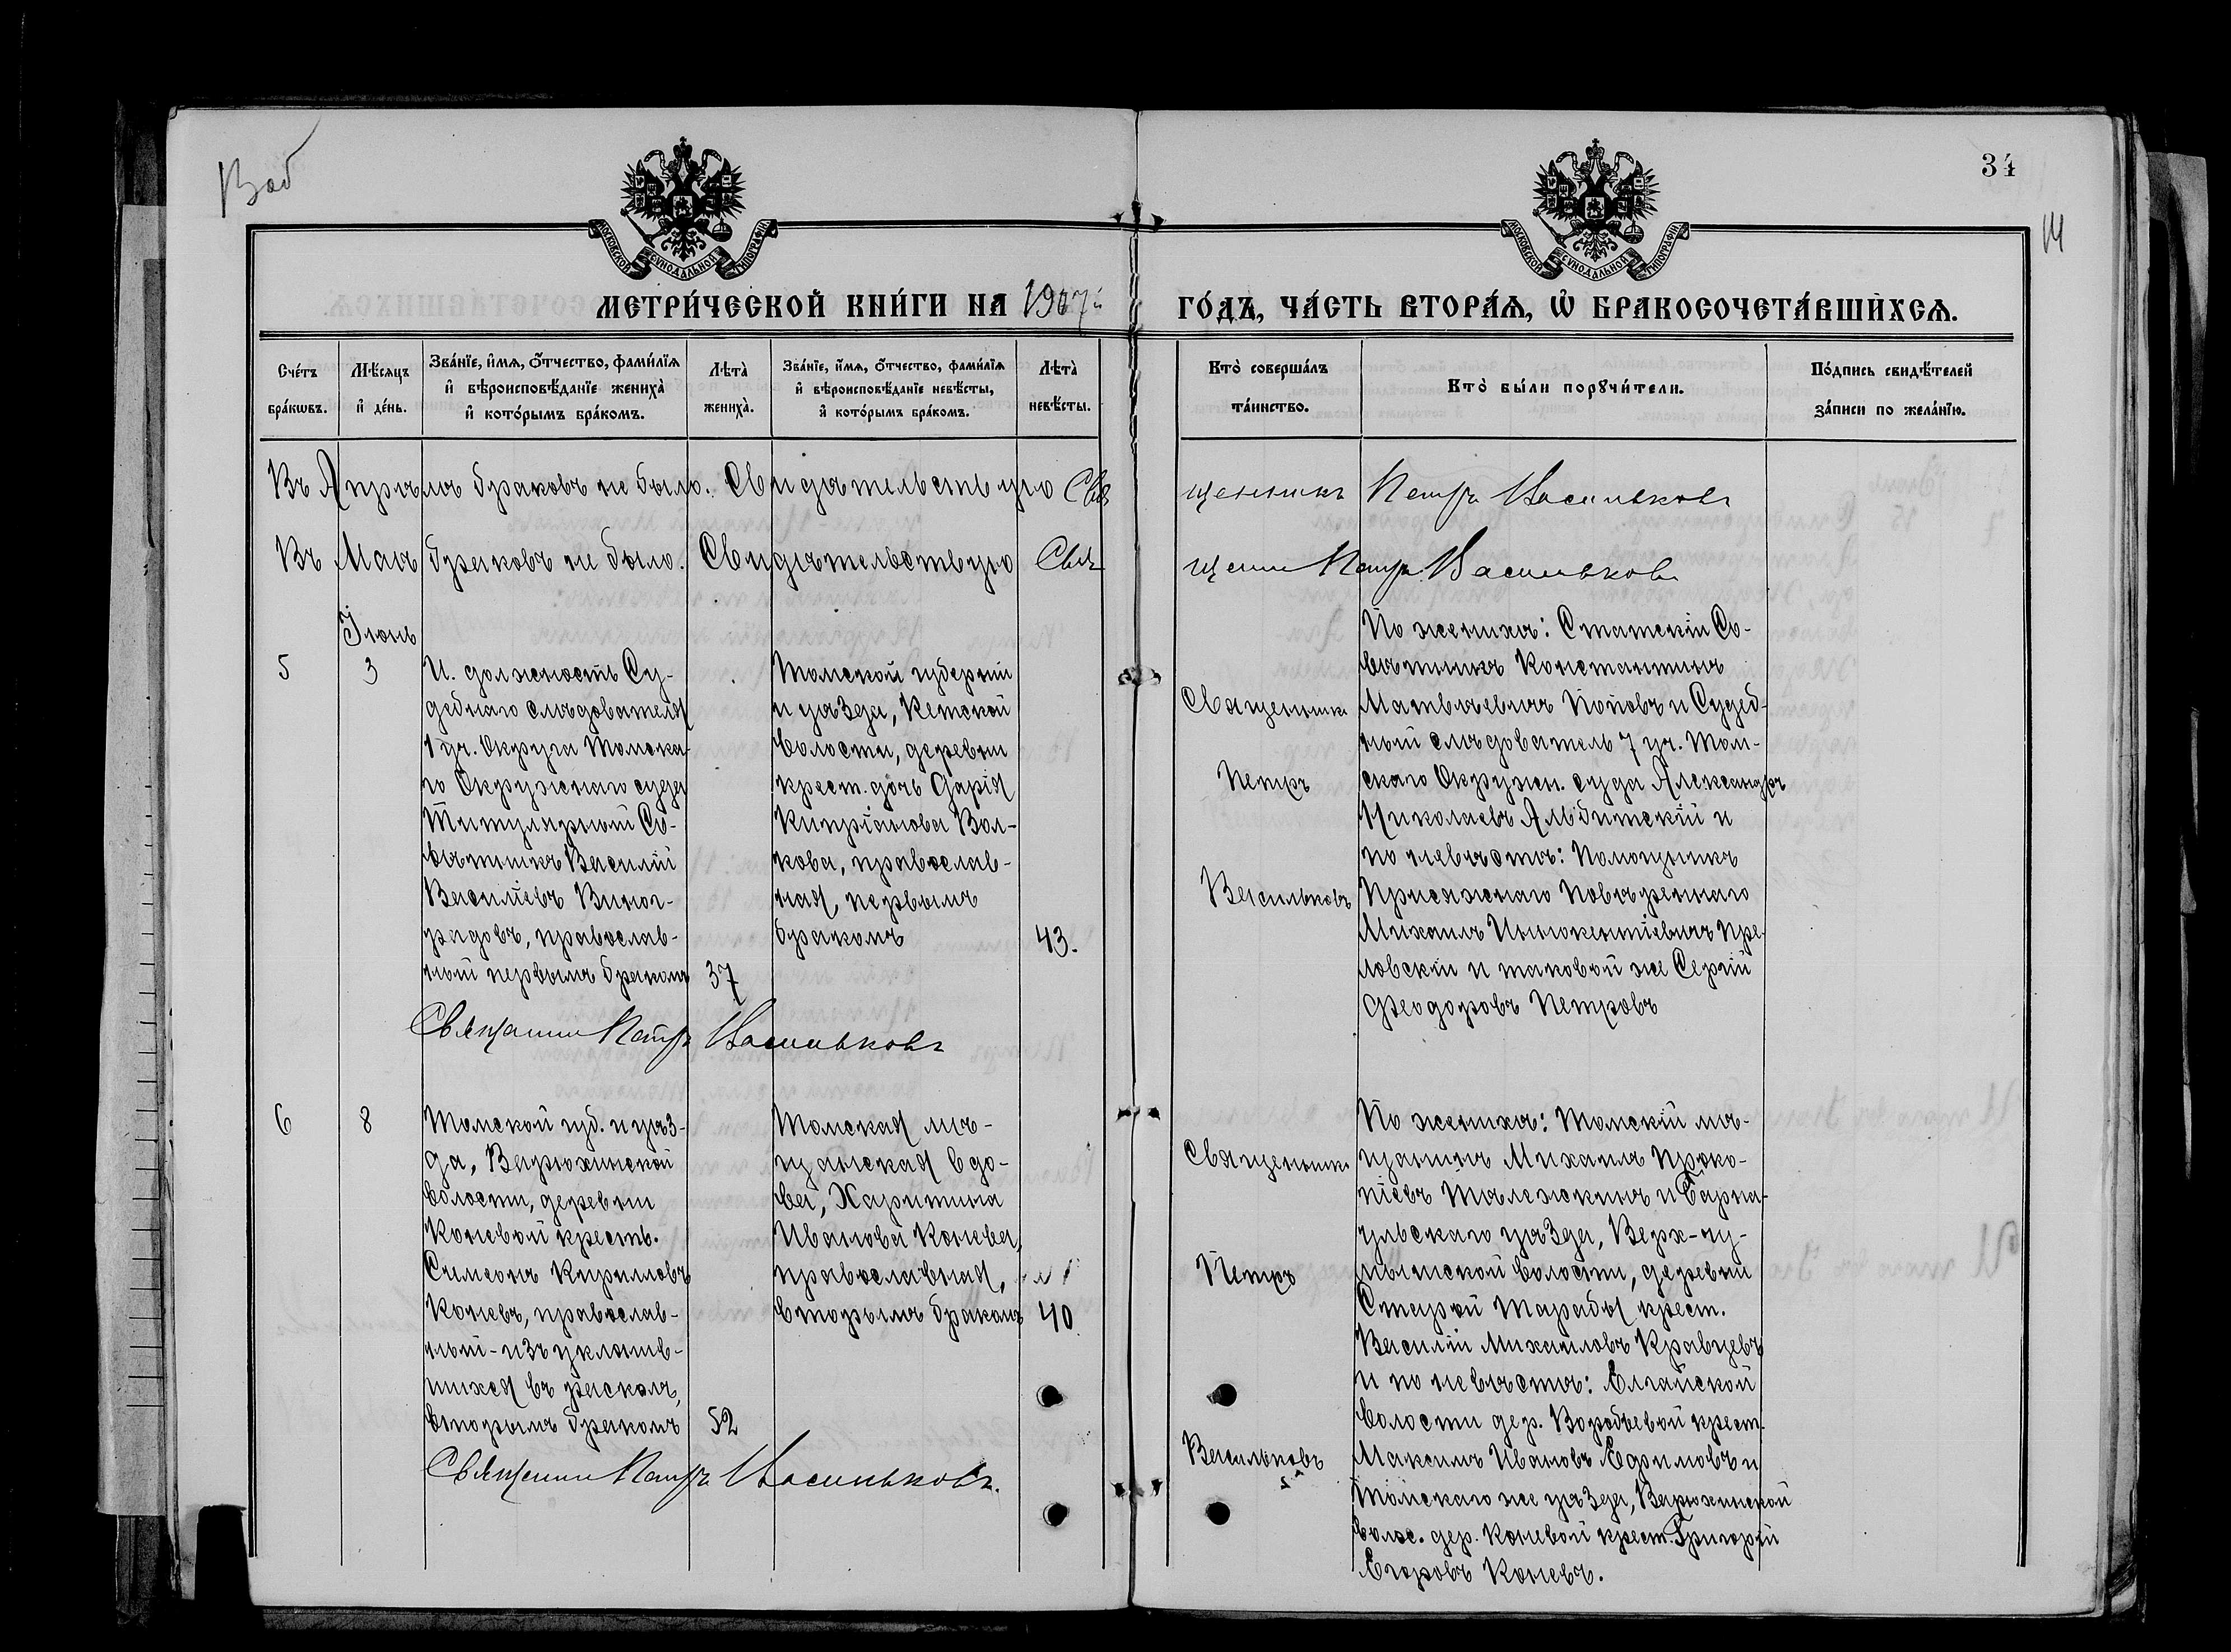 34
14
МОСКОВСКОЙ СѴНОДАЛЬНОЙ ТИПОГРАФІИ
МОСКОВСКОЙ СѴНОДАЛЬНОЙ ТИПОГРАФІИ
МЕТРИ́ЧЕСКОЙ КНИ́ГИ НА 1907
ГО́ДЪ, ЧА́СТЬ ВТОРА́Ѧ, Ѽ БРАКОСОЧЕТА́ВШИХСѦ.
Сче́тъ бра́кѡвъ.
Мѣ́сяцъ и҆ де́нь.
Зва́нїе, и҆́мѧ, ѻ҆́тчество, фами́лїѧ
и҆ вѣроисповѣ́данїе жениха̀
и҆ кото́рымъ бра́комъ.
Лѣта̀ жениха̀.
Зва́нїе, и҆́мѧ, ѻ҆́тчество, фами́лїѧ
и҆ вѣроисповѣ́данїе невѣ́сты,
и҆ кото́рымъ бра́комъ.
Лѣта̀ невѣ́сты.
Кто̀ соверша́лъ та́инство.
Кто̀ бы́ли порꙋчи́тели.
По́дпись свидѣ́телей
за́писи по жела́нїю.
Въ Апрѣлѣ браковъ не было. Свидѣтельствую Свя
щенникъ Петръ Васильковъ
Въ Маѣ браковъ не было. Свидѣтельствую Свя
щенни Петръ Васильковъ
Іюнь
5
3
И. должность Су-
дебнаго слѣдователя
1 уч. Округа Томска-
го Окружнаго суда
Титулярный Со-
вѣтникъ Василій
Васильевъ Виног-
радовъ, православ-
ный первымъ бракомъ
37
Томской губерніи
и уѣзда, Кетской
волости, деревни
крест. дочь Дарія
Кипріанова Вол-
кова, православ-
ная, первымъ
бракомъ
43.
Священникъ
Петръ
Васильковъ
По женихѣ: Статскій Со-
вѣтникъ Константинъ
Матвѣевичъ Поповъ и Судеб-
ный слѣдователь 7 уч. Том-
скаго Окружн. суда Александръ
Николаевъ Альбитскій и
по невѣстѣ: Помощникъ
Присяжнаго Повѣреннаго
Михаилъ Иннокентіевичъ Пре-
ловскій и таковой же Сергій
Феодоровъ Петровъ
Священни Петръ Васильковъ
6
8
Томской губ. и уѣз-
да, Варюхинской
волости, деревни
Коневой кресть.
Симеонъ Кириловъ
Коневъ, православ-
ный - изъ уклонив-
шихся въ расколъ,
вторымъ бракомъ
52
Томская мѣ-
щанская вдо-
ва, Харитина
Иванова Конева,
православная,
вторымъ бракомъ
40
Священникъ
Петръ
Васильковъ
По женихѣ: Томскій мѣ-
щанинъ Михаилъ Проко-
піевъ Тележкинъ и Барна-
ульскаго уѣзда, Верх-чу-
мышской волости, деревни
Старой Тарабы крест.
Василій Михаиловъ Кравцевъ
и по невѣстѣ: Елгайской
волости дер. Воробьевой крест.
Максимъ Ивановъ Ефимовъ и
Томскаго же уѣзда, Варюхинской
волос. дер. Коневой крест. Григорій
Егоровъ Коневъ.
Священни Петръ Васильковъ.